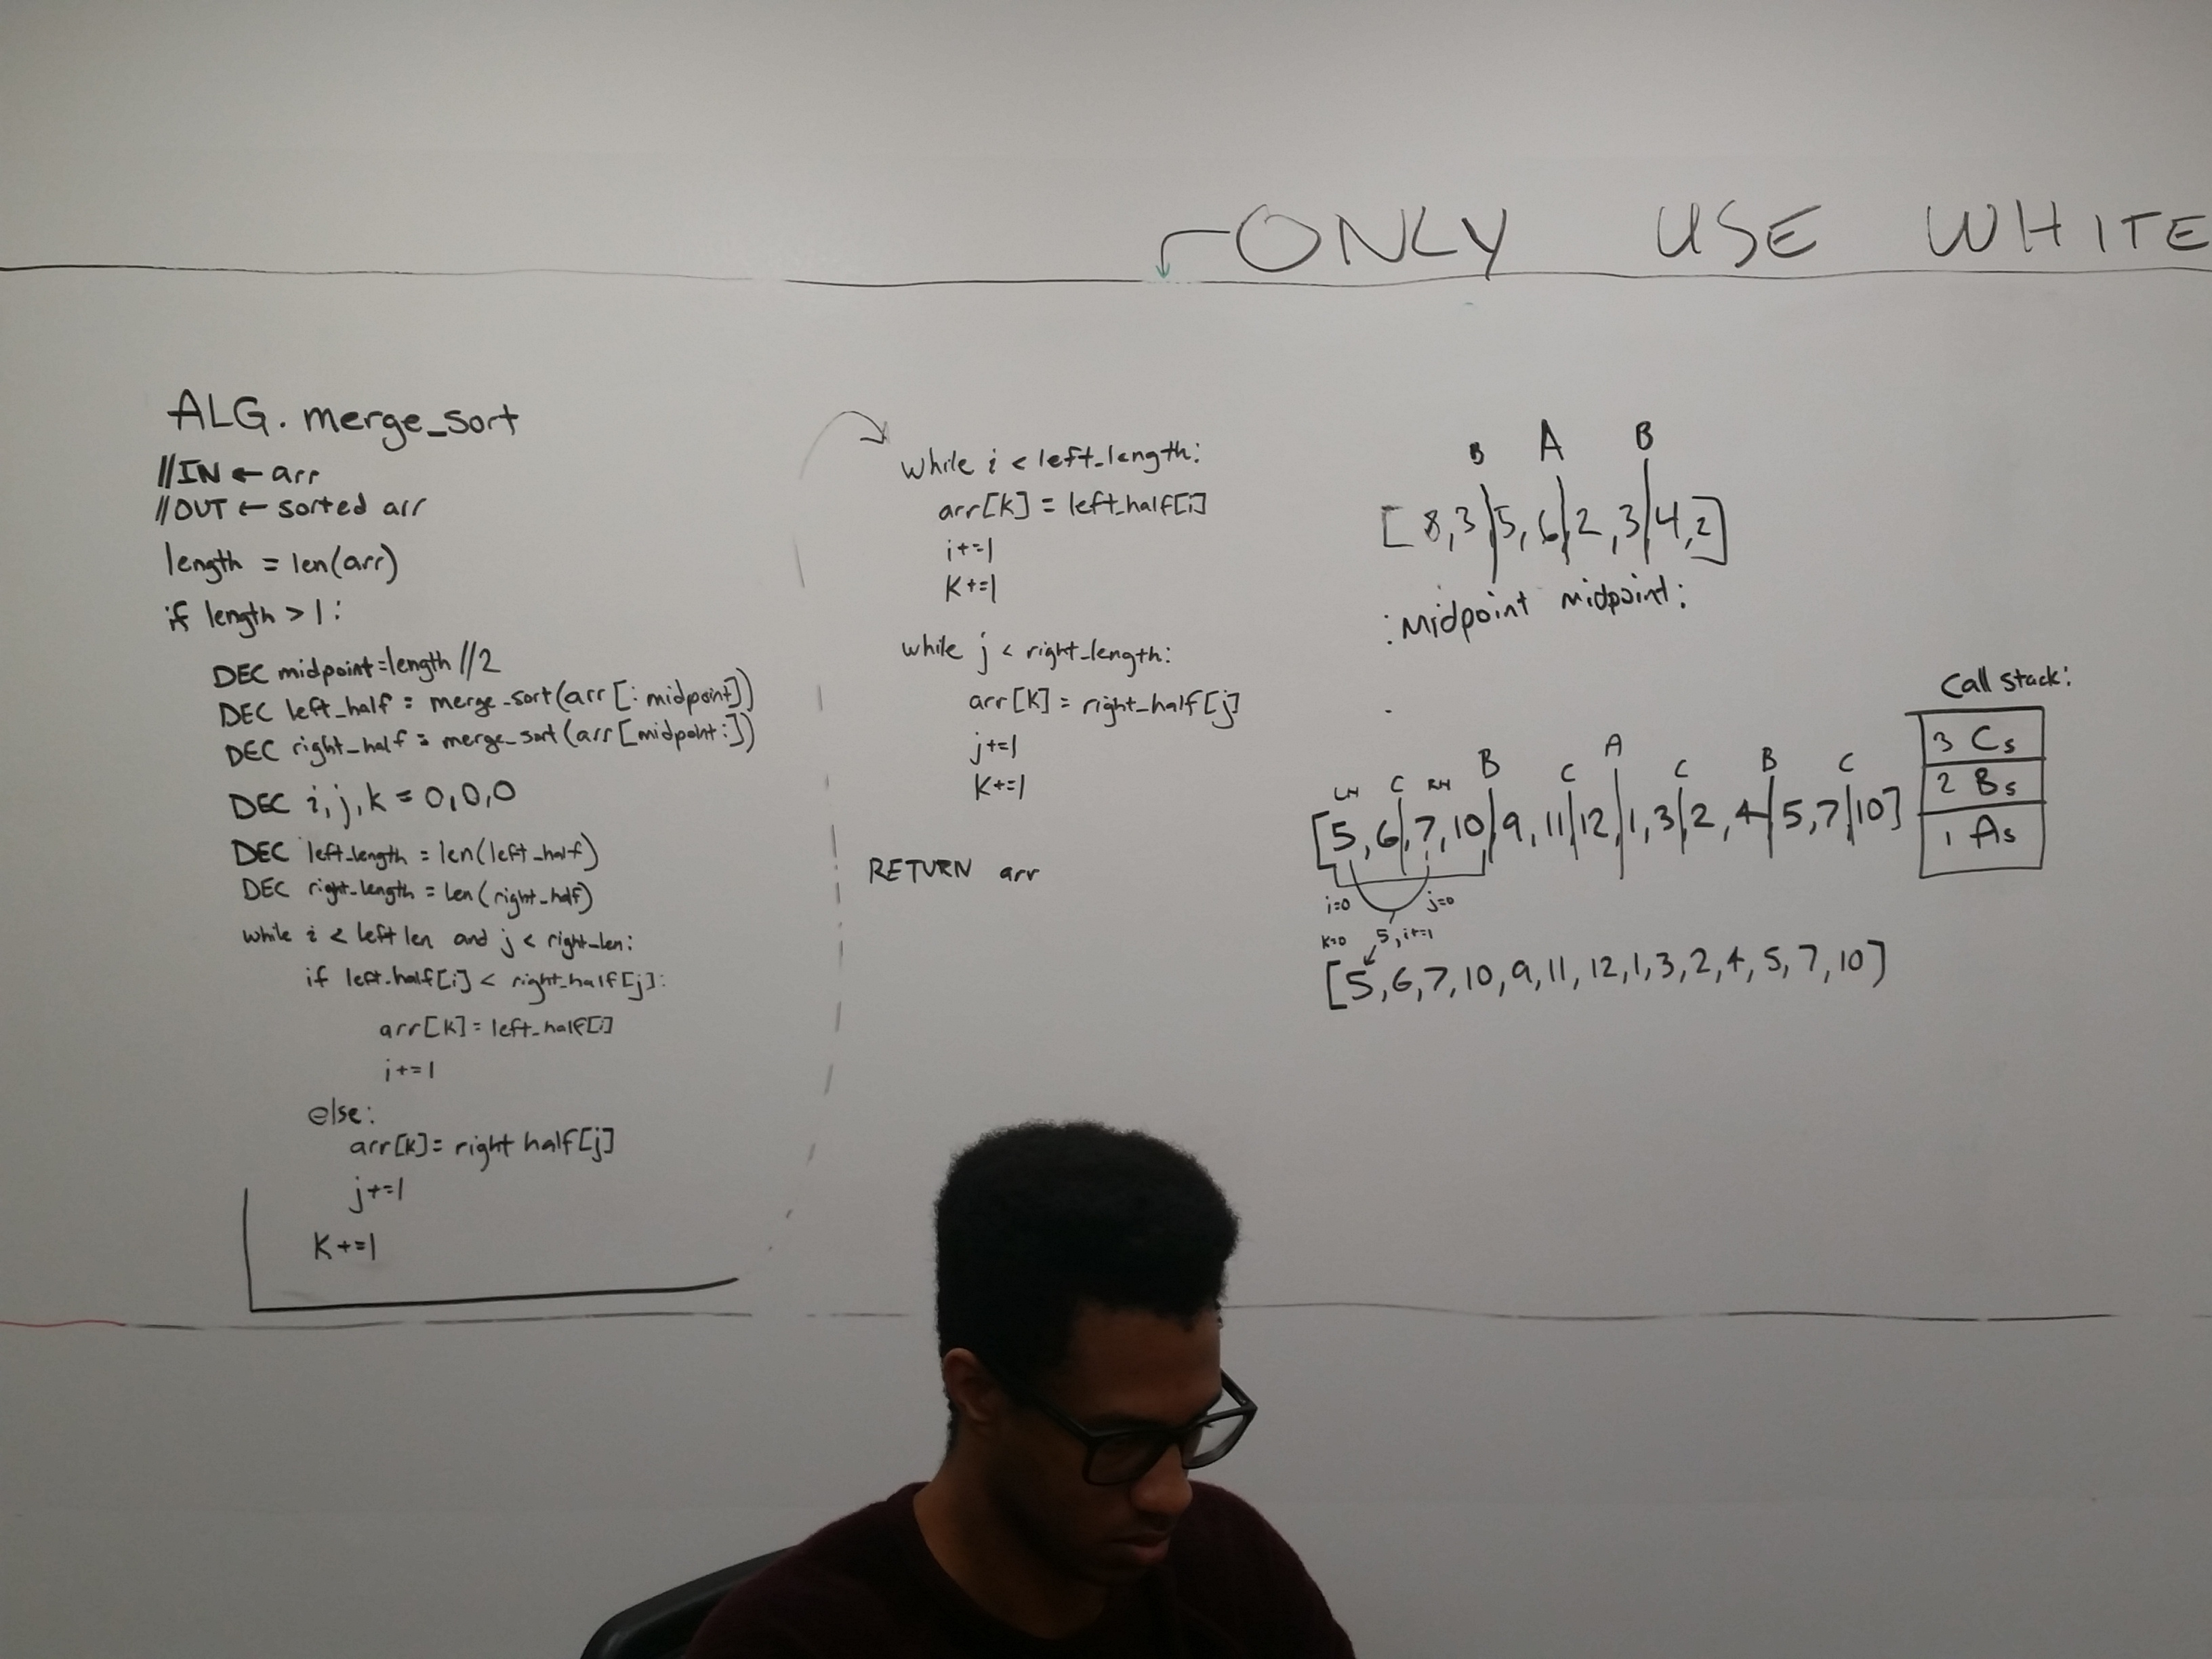 ONLY USE WHITE
ALG. merge_sort
//IN ← arr
//OUT ← sorted arr
length = len(arr)
if length > 1:
DEC midpoint=length//2
DEC left_half = merge_sort(arr[:midpoint])
DEC right_half = merge_sort(arr[midpoint:])
DEC i,j,k = 0,0,0
DEC left_length = len(left_half)
DEC right_length = len(right_half)
while i < left len and j < right_len:
if left_half[i] < right_half[j]:
arr[k] = left_half[i]
i+=1
else:
arr[k] = right half[j]
j+=1
K+=1
while i < left_length:
arr[k] = left_half[i]
i+=1
K+=1
while j < right_length:
arr[k] = right_half[j]
j+=1
K+=1
RETURN arr
B A B
[8,3|5,6|2,3|4,2]
:Midpoint midpoint:
LH C RH B C A C B C
[5,6|,7,10|9,11|12,|1,3|2,4|5,7|10]
i=0 j=0
k=0 5, i+=1
[5,6,7,10,9,11,12,1,3,2,4,5,7,10]
Call stack:
3 Cs
2 Bs
1 As